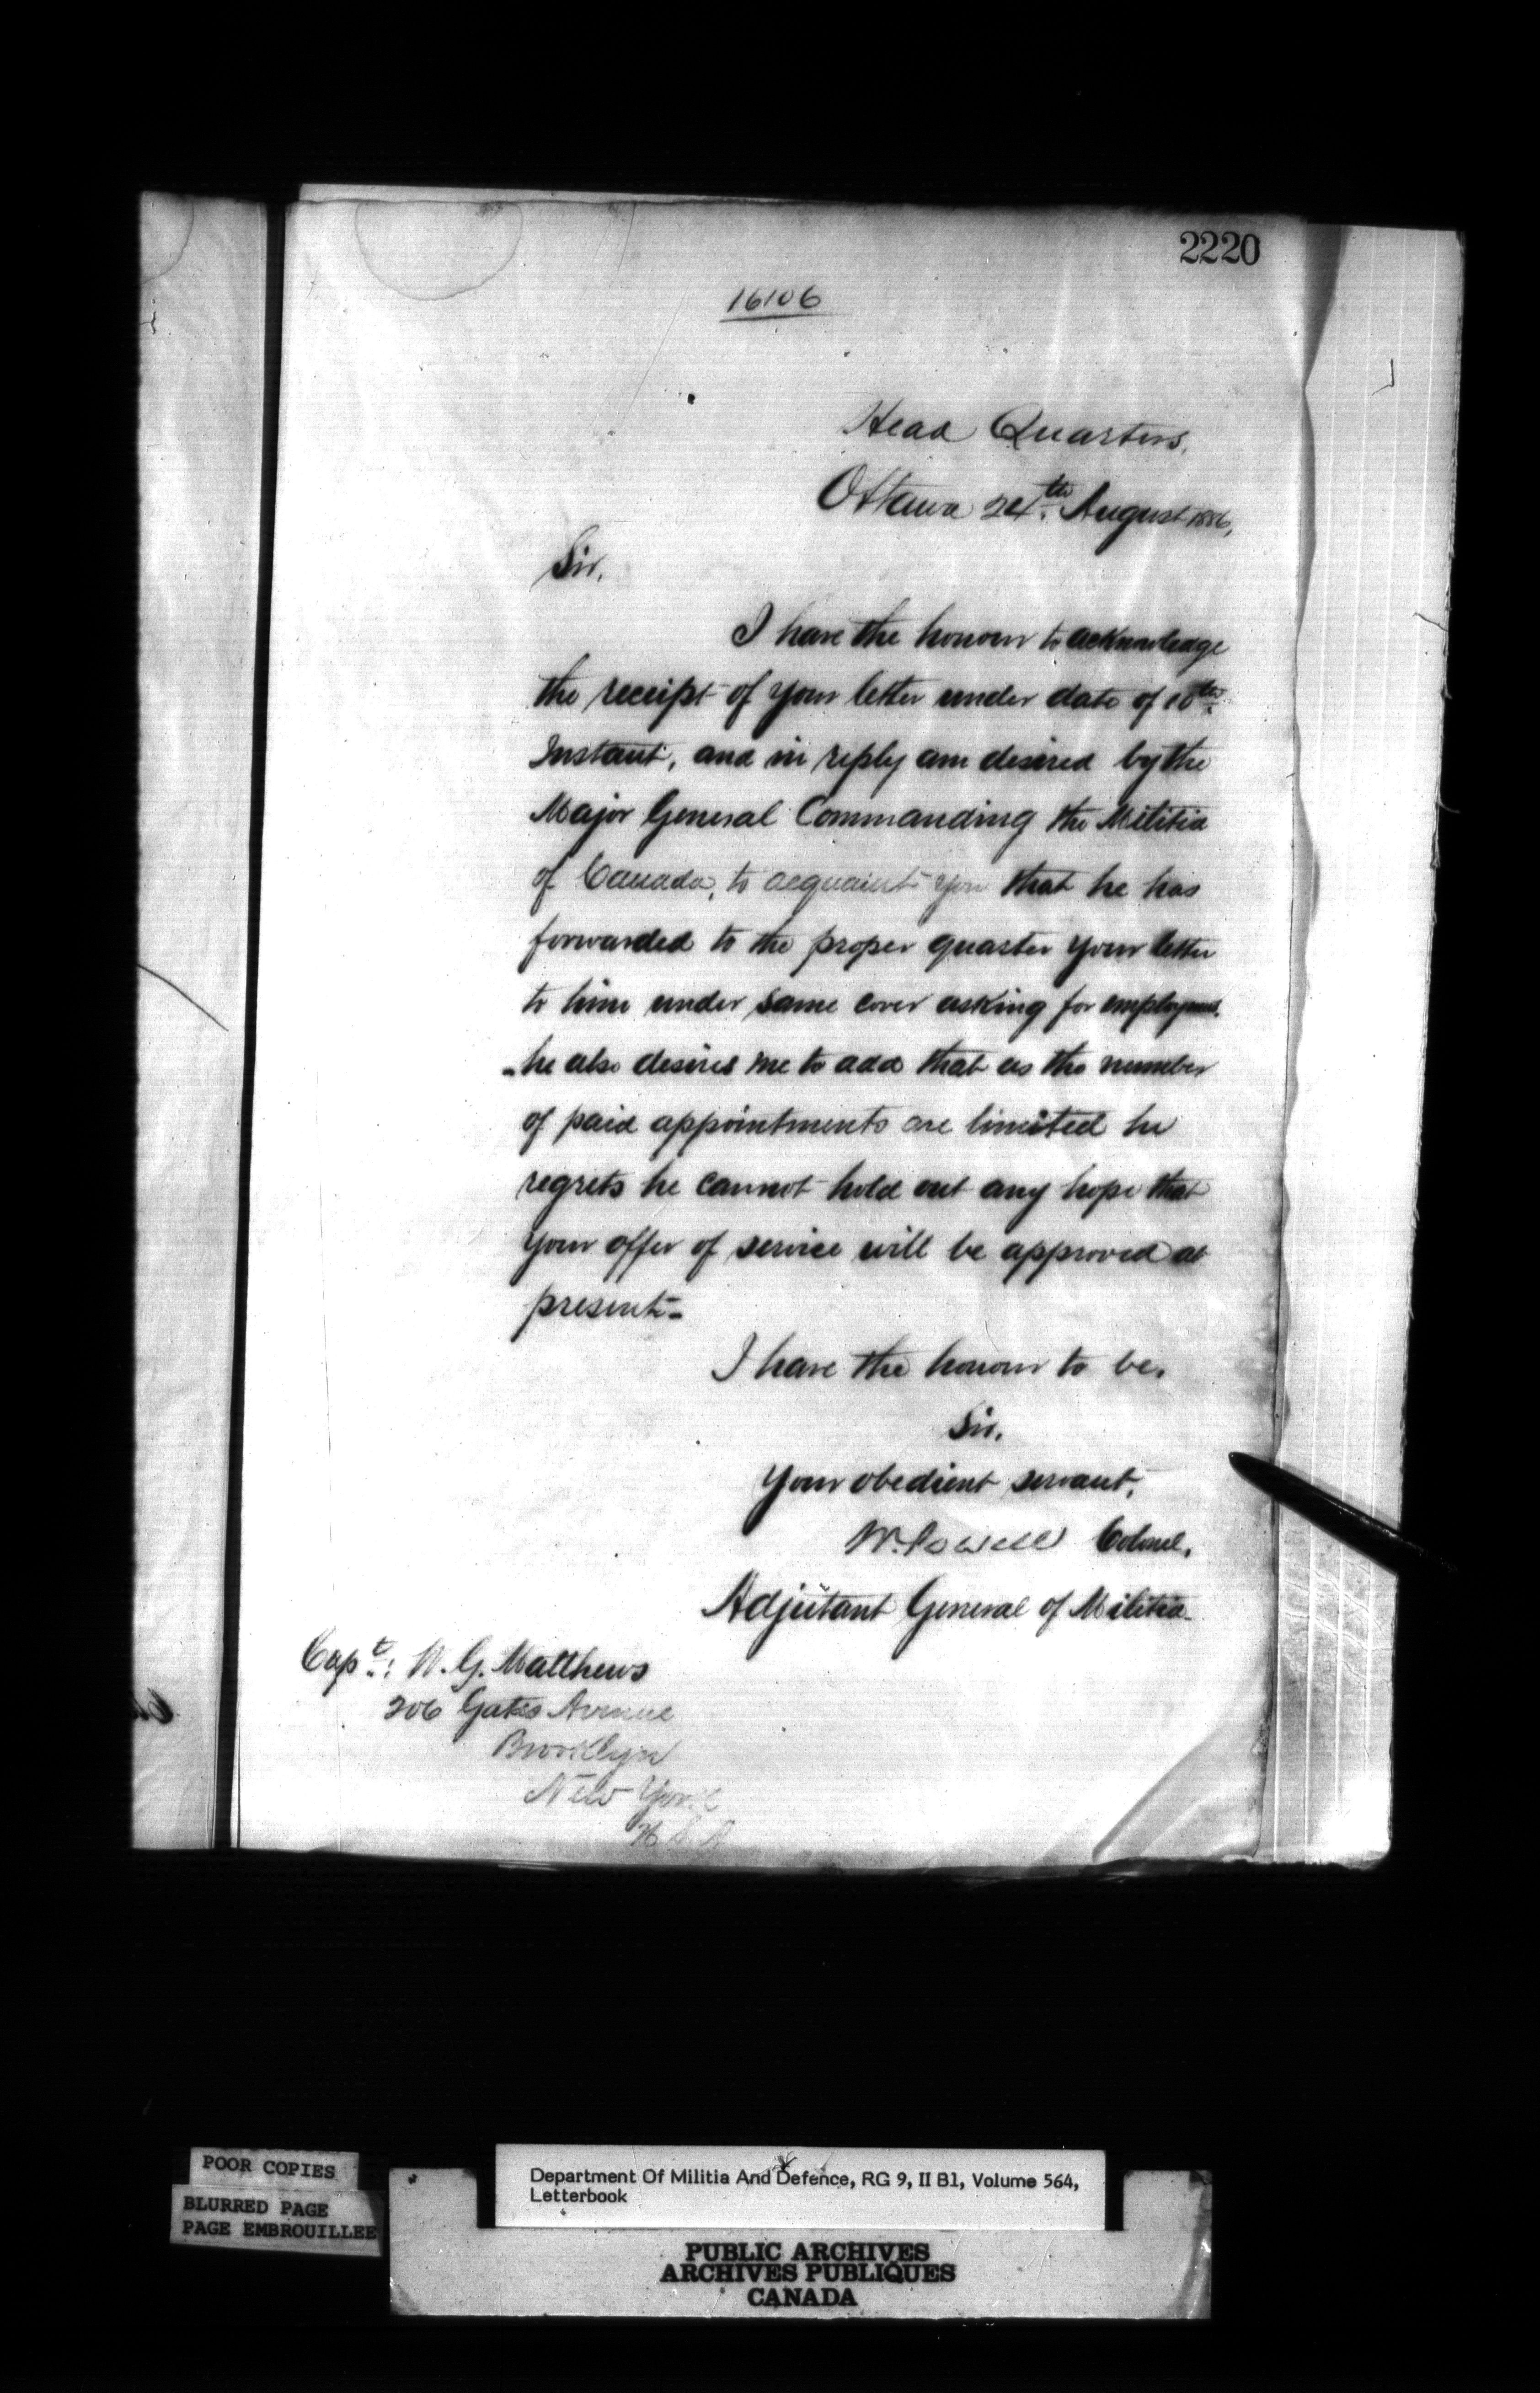 2220
16106
Head Quarters,
Ottawa 24th August 1886,
Sir,
I have the honour to acknowledge
the receipt of your letter under date of 10th
Instant, and in reply am desired by the
Major General Commanding the Militia
of Canada, to acquaint you that he has
forwarded to the proper quarter your letter
to him under same cover asking for employment.
- he also desires me to add that as the number
of paid appointments are limited he
regrets he cannot hold out any hope that
your offer of service will be approved at
present -
I have the honour to be,
Sir,
Your obedient servant,
W. Powell Colonel,
Adjutant General of Militia
Capt: W. G. Matthews
206 Gates Avenue
Brooklyn
New York
U.S.A
POOR COPIES
BLURRED PAGE
PAGE EMBROUILLEE
Department Of Militia And Defence, RG 9, II B1, Volume 564,
Letterbook
PUBLIC ARCHIVES
ARCHIVES PUBLIQUES
CANADA